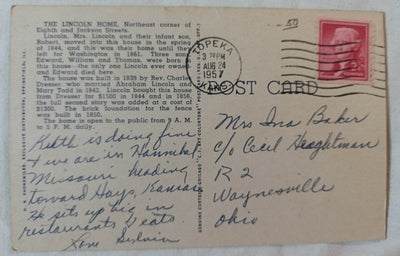 THE LINCOLN HOME, Northeast corner of
Eighth and Jackson Streets.
Lincoln, Mrs. Lincoln and their infant son,
Robert, moved into this house in the spring
of 1844, and this was their home until they
left for Washington in 1861. Three sons,
Edward, William and Thomas, were born in
this house—the only one Lincoln ever owned—
and Edward died here.
The house was built in 1839 by Rev. Charles
Dresser who married Abraham Lincoln and
Mary Todd in 1842. Lincoln bought this house
from Dresser for $1500 in 1844 and in 1856,
the full second story was added at a cost of
$1300. The brick foundation for the fence
was built in 1850.
The home is open to the public from 9 A.M.
to 5 P.M. daily.
Keith is doing fine
& we are in Hannibal
Missouri heading
toward Hays, Kansas
He sits up big in
restaurants & eats.
Love Sylvia
TOPEKA
3 PM
AUG 24
1957
KANS
POST CARD
Mrs Ina Baker
c/o Cecil
R 2
Waynesville
Ohio